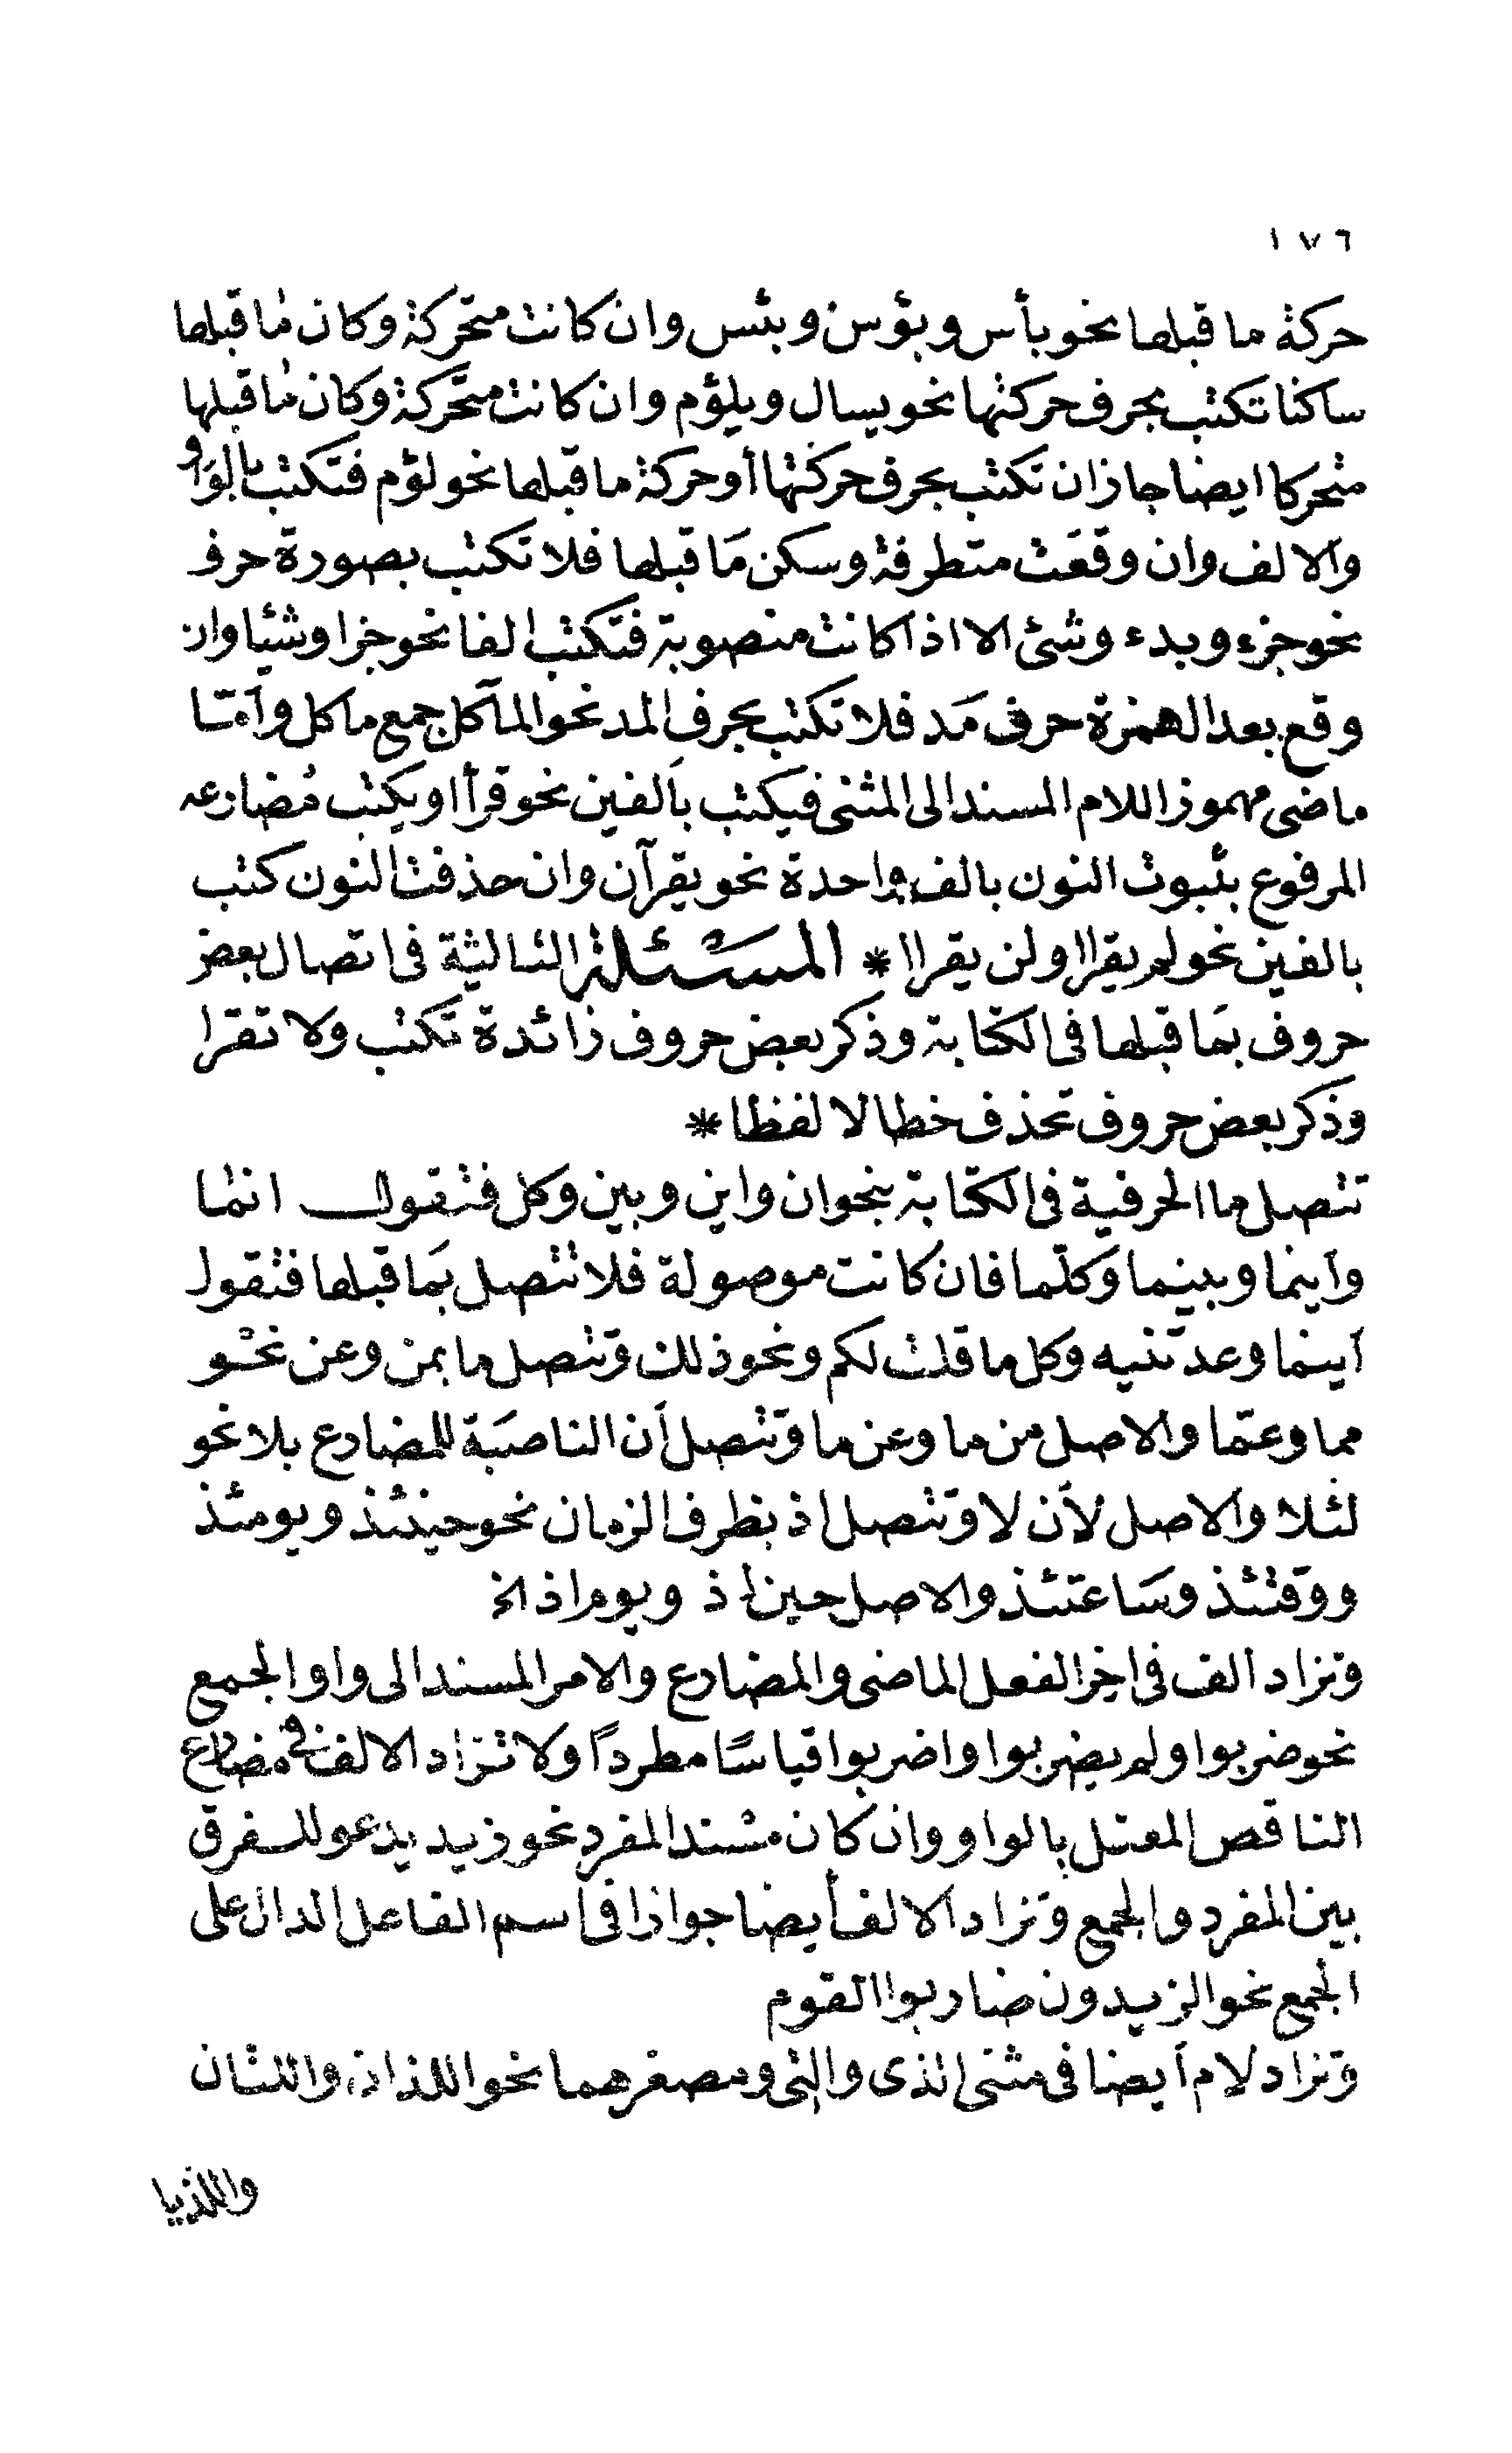 ١٧٦
حركة ما قبلها نحو بأس وبؤس وبئس وان كانت متحركة وكان ما قبلها
ساكنا تكتب بحرف حركتها نحو يسال ويلؤم وان كانت متحركة وكان ما قبلها
متحركا ايضا جاز ان تكتب بحرف حركتها أو حركة ما قبلها نحو لؤم فتكتب بالواو
والالف وان وقعت متطرفة وسكن ما قبلها فلا تكتب بصورة حرف
نحو جزء وبدء وشئ الا اذا كانت منصوبة فتكتب الفا نحو جزا وشئيا وان
وقع بعد الهمزة حرف مد فلا تكتب بحرف المد نحو المآكل جمع ماكل وأمّا
ماضى مهموز اللام المسند الى المثنى فيكتب بألفين نحو قرأا ويكتب مُضارعه
المرفوع بثبوت النون بالف واحدة نحو يقرآن وان حذفت النون كتب
بالفين نحو لم يقراا ولن يقراا * المسئلة الثالثة فى اتصال بعض
حروف بما قبلها فى الكتابة وذكر بعض حروف زائدة تكتب ولا تقرا
وذكر بعض حروف تحذف خطا لا لفظا *
تتصل ما الحرفية فى الكتابة بنحو ان واين وبين وكل فتقول انما
وأينما وبينما وكلّما فان كانت موصولة فلا تتصل بما قبلها فتقول
أينما وعدتنيه وكل ما قلت لكم ونحو ذلك وتتصل ما بمن وعن نحو
مما وعمّا والاصل من ما وعن ما وتتصل أن الناصبة للمضارع بلا نحو
لئلا والاصل لأن لا وتتصل اذ بظرف الزمان نحو حينئذ ويومئذ
ووقتئذ وساعتئذ والاصل حين اذ ويوم اذ الخ
وتزاد الف فى اخر الفعل الماضى والمضارع والامر المسند الى واو الجمع
نحو ضربوا ولم يضربوا واضربوا قياسًا مطردًا ولا تزاد الالف فى مضارع
الناقص المعتل بالواو وان كان مسند المفرد نحو زيد يدعو للفرق
بين المفرد والجمع وتزاد الالف أيضا جوازا فى اسم الفاعل الدال على
الجمع نحو الزيدون ضاربوا القوم
وتزاد لام أيضا فى مثنى الذى والتى ومصغرهما نحو اللذان واللتان
واللذيا